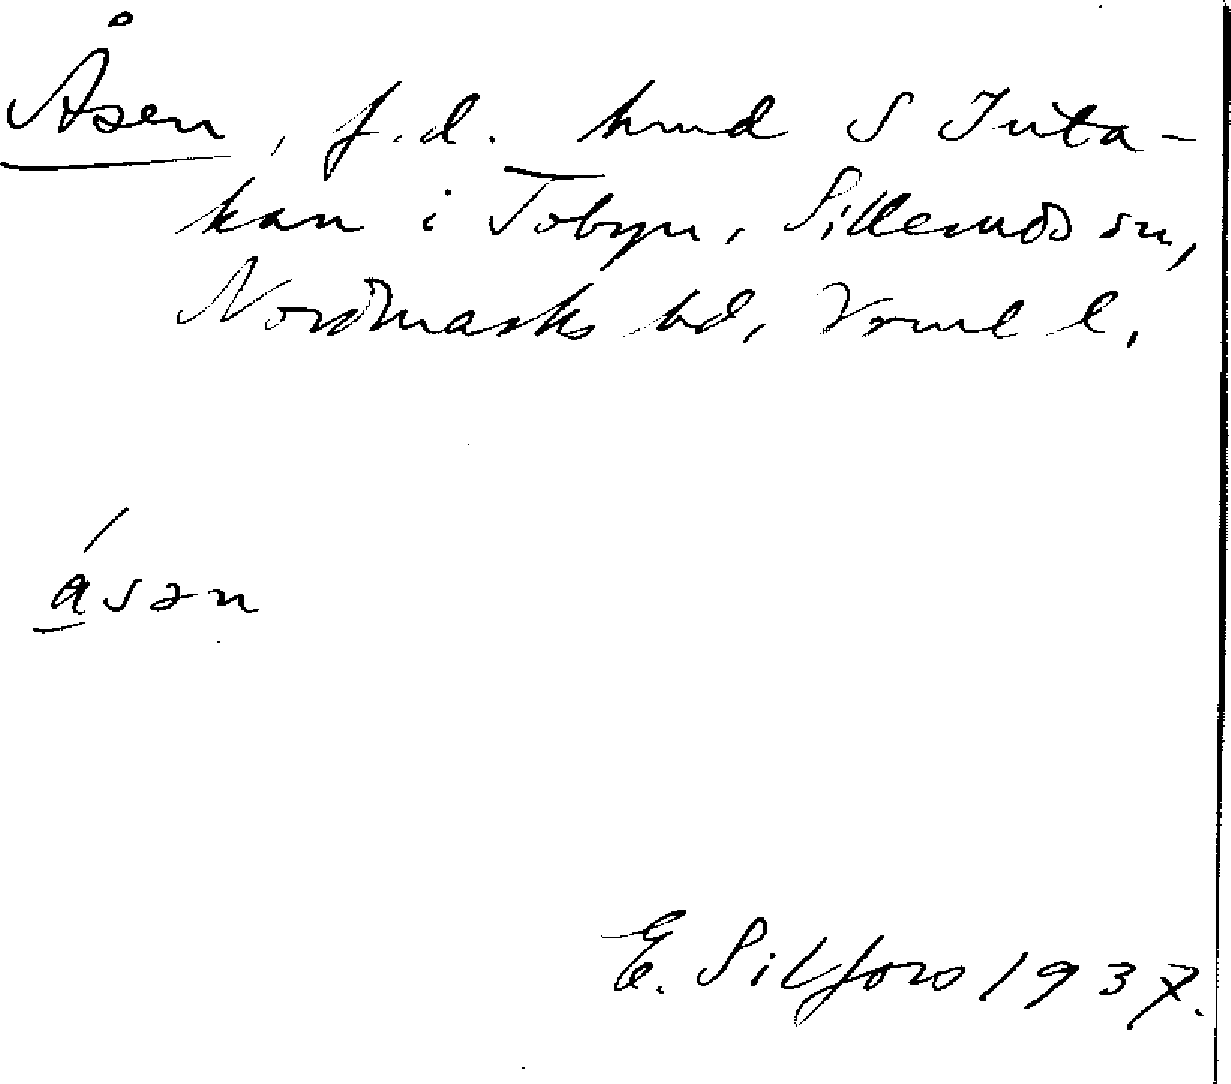 Åsen, f.d. hmd S Inta-
kan i Tobyn, Silleruds sn,
Nordmarks hd, Värml l.
ásən
E. Silfors 1937.